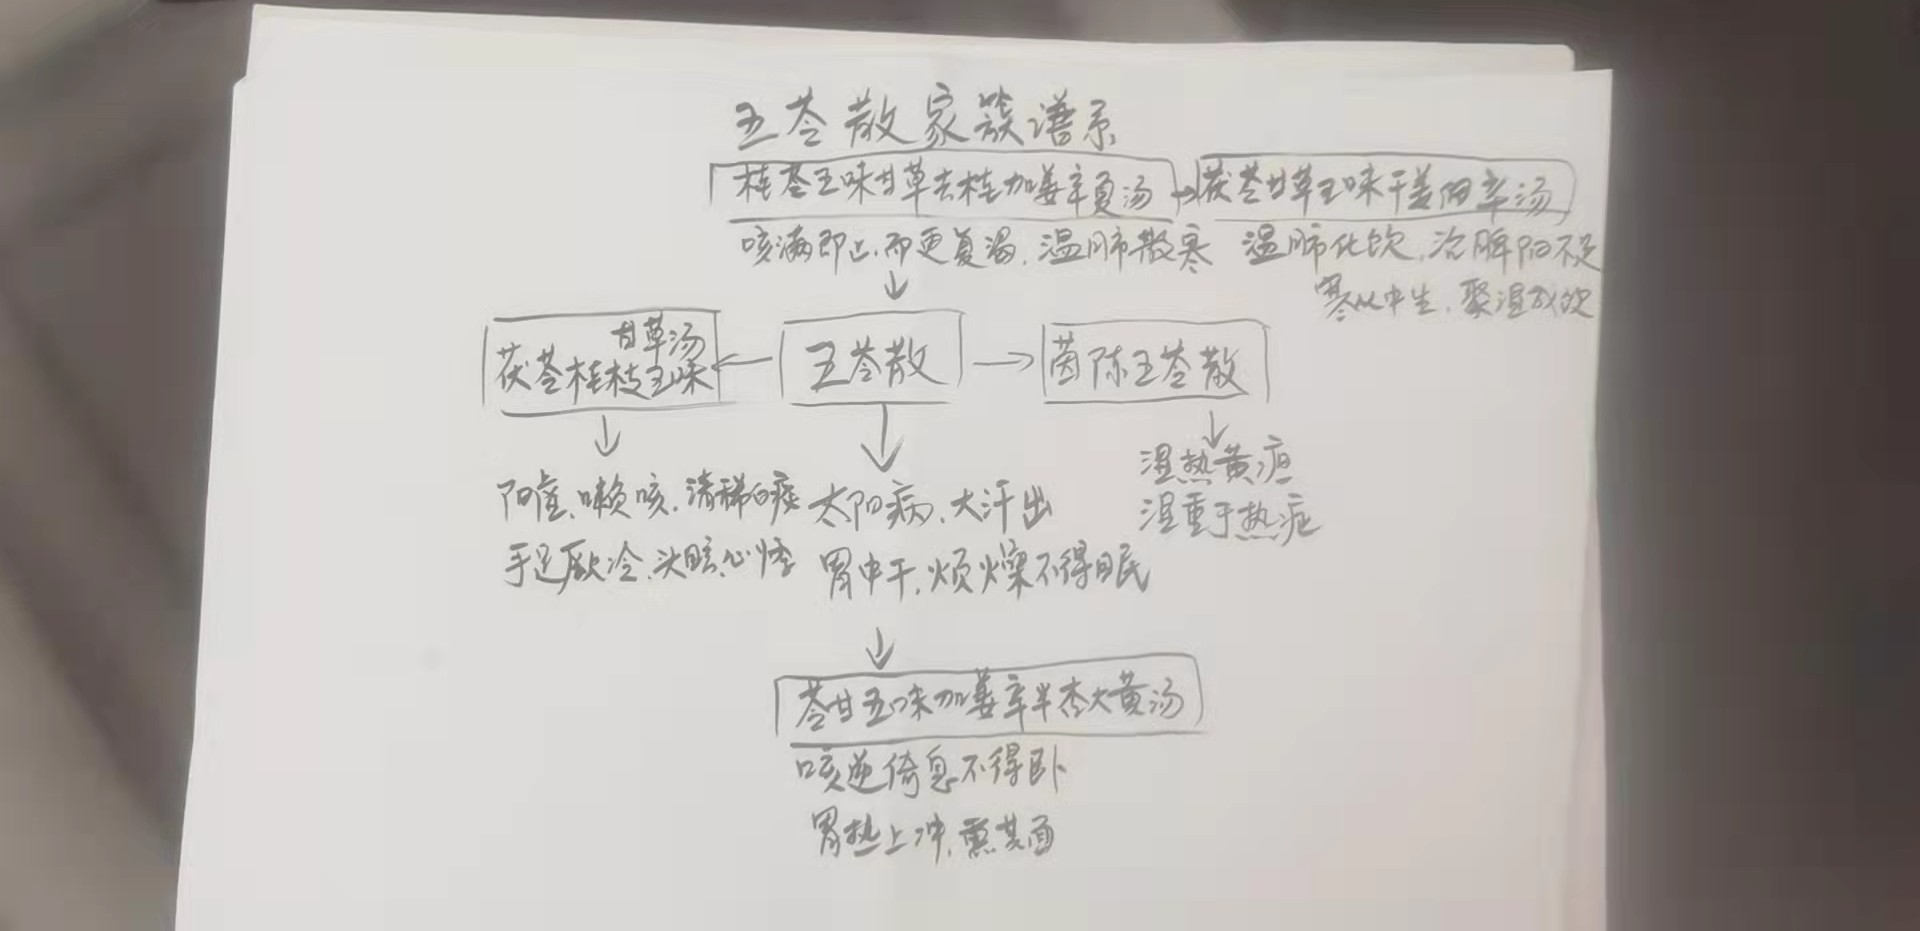 五苓散家簇谱系
桂苓五味甘草去桂加姜辛夏汤
茯苓甘草五味干姜细辛汤
咳满即止,而更复渴,温肺散寒
温肺化饮,治脾阳不足
寒从中生,聚湿成饮
甘草汤
茯苓桂枝五味
五苓散
茵陈五苓散
阳虚、嗽咳,清稀白痰
手足厥冷、头眩、心悸
太阳病、大汗出
胃中干,烦燥不得眠
湿热黄疸
湿重于热症
苓甘五味加姜辛半杏大黄汤
咳逆倚息不得卧
胃热上冲,熏其面